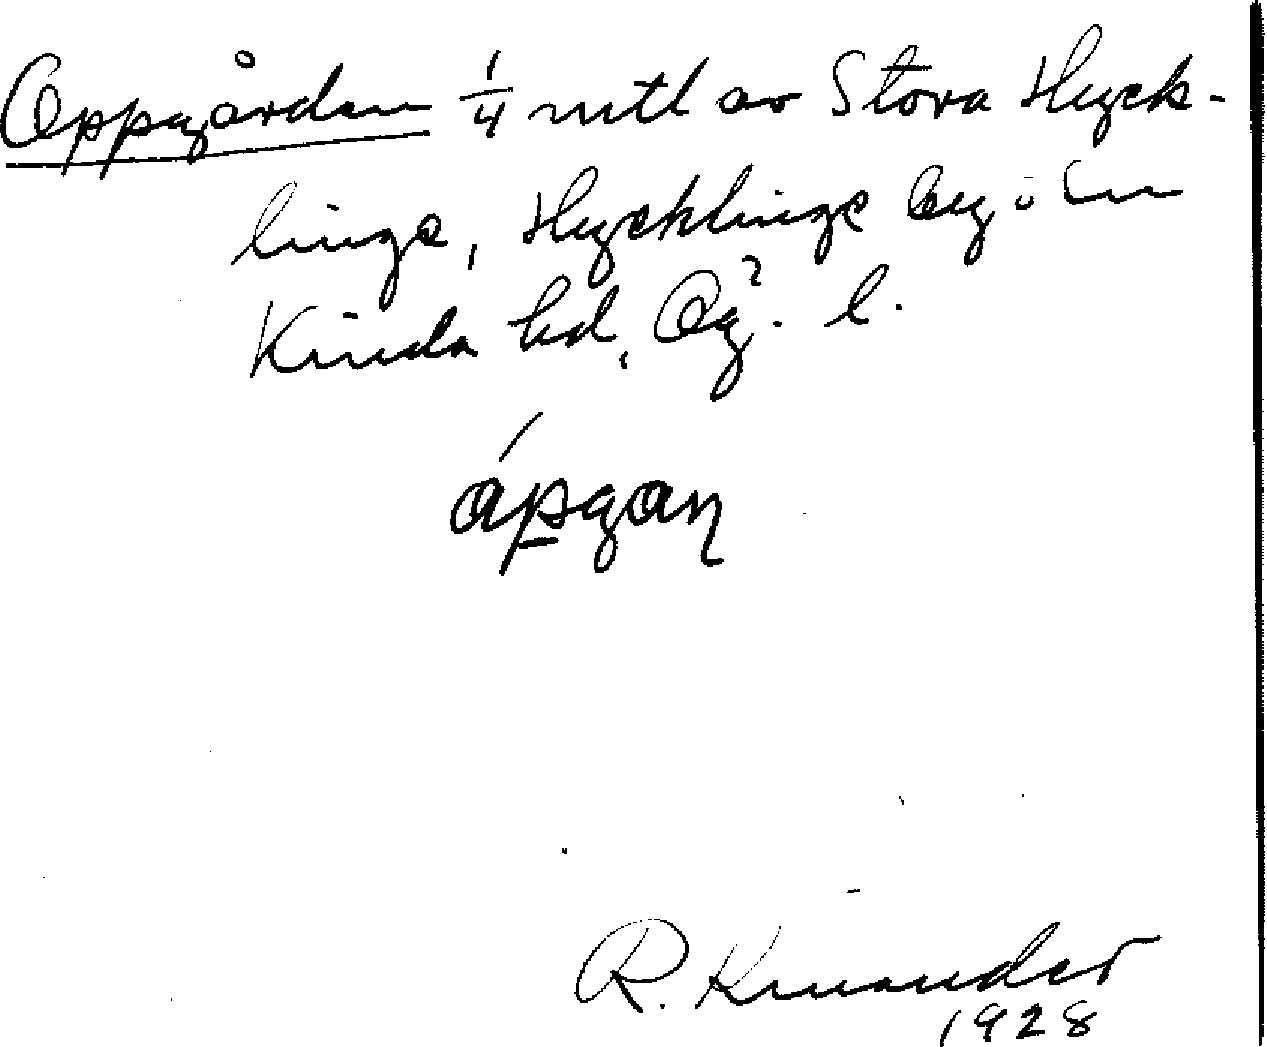 Oppgården 1/4 mtl av Stora Hyck-
linge, Hycklinge by o
Kinda hd, Ög. l.
R. Kinander
1928